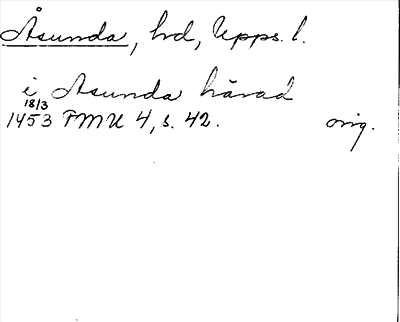 Åsunda, hd, Upps. l.
i Asunda härad
18/3
1453 FMU 4, s. 42. orig.